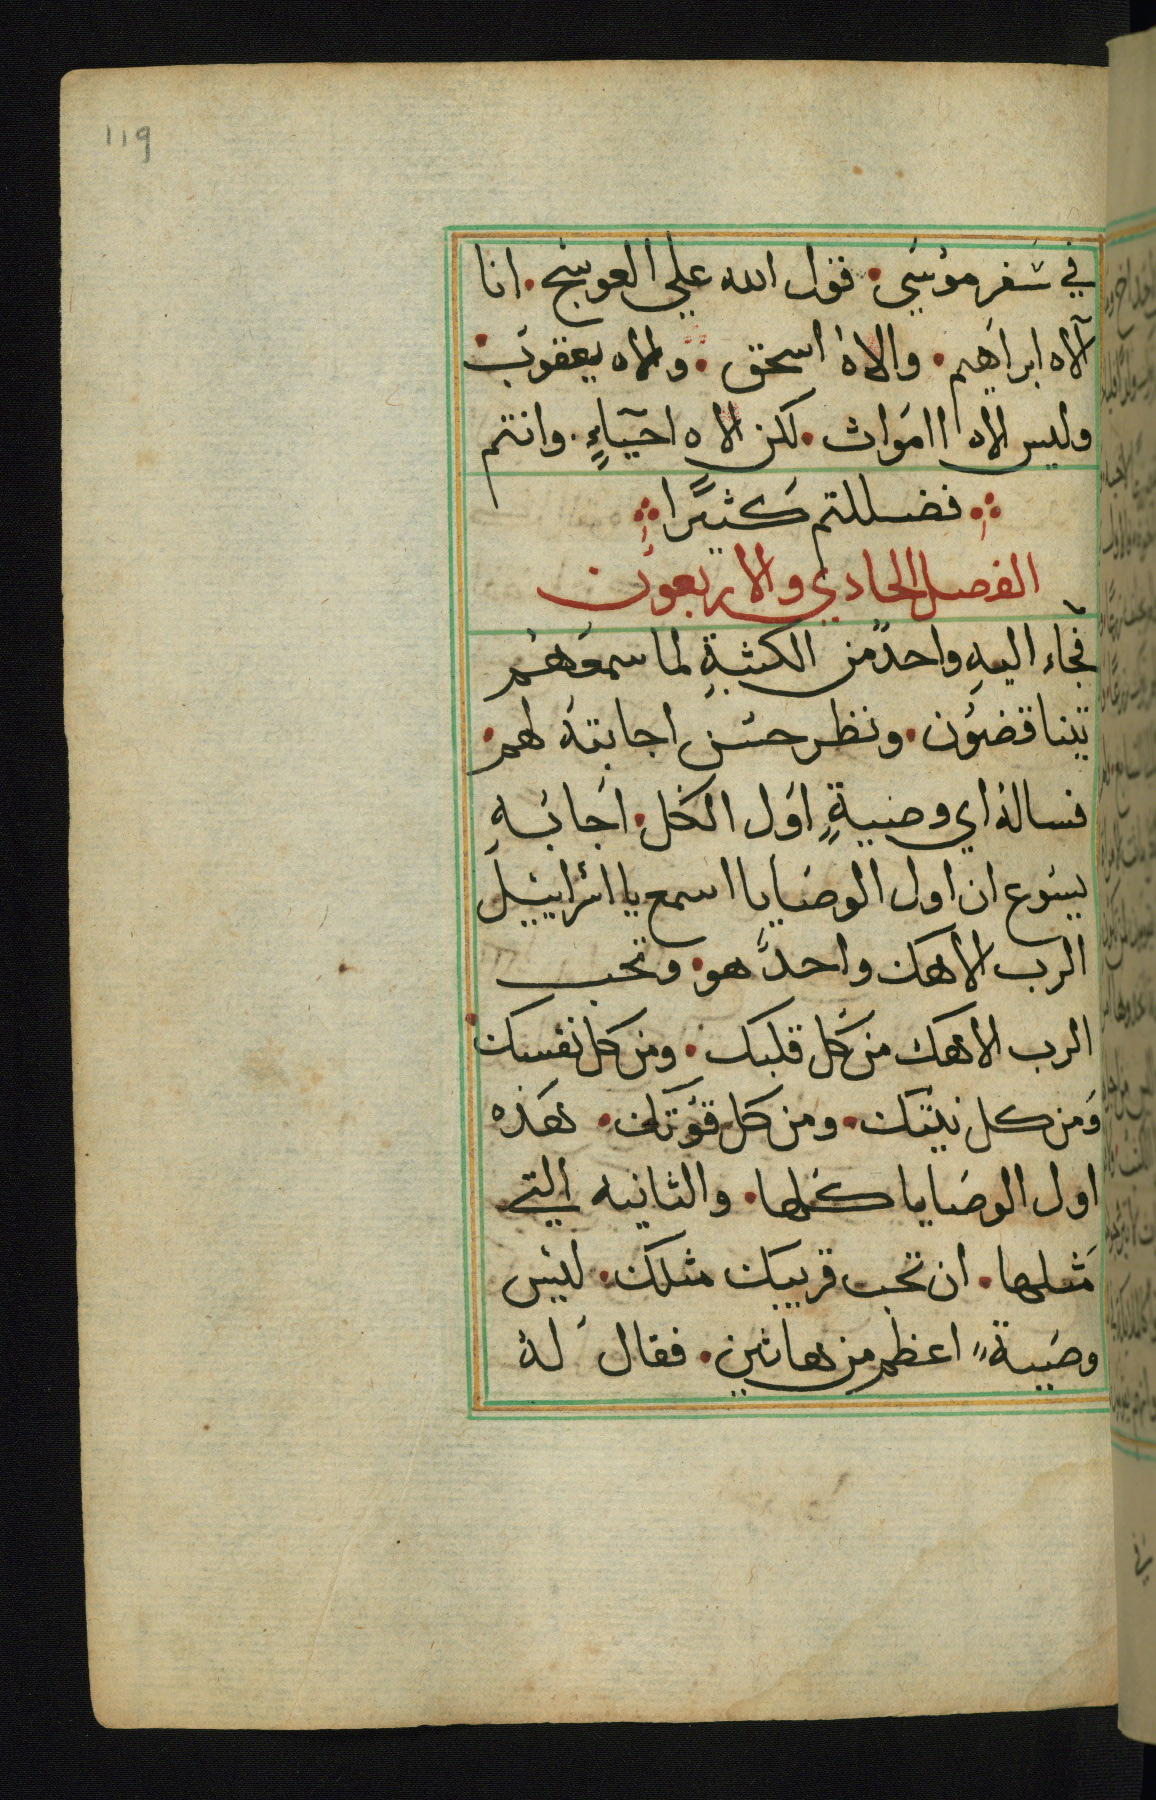 119
في سفر موسي. قول الله علي العوسج. انا
آلاه ابراهيم. والاه اسحق. والاه يعقوب.
وليس الاه اموات. لكن الاه احيآءٍ. وانتم
فضللتم كثيرًا
الفصل الحادي والاربعون
فجآء اليه واحدٌ من الكتبةِ لما سمعَهُم
يتناقضون. ونظر حسن اجابتهُ لهم.
فسالهُ اي وصيةٍ اول الكل. اجابه
يسوع ان اول الوصايا اسمع يا اسرايىل
الرب الاهك واحدً هو. وتحب
الرب الاهك من كل قلبك. ومن كل نفسك.
ومن كل نيتك. ومن كل قوتك. هذه
اول الوصايا كلها. والثانيه التي
مثلها. ان تحب قريبك مثلك. ليس
وصية اعظم من هاتين. فقال له